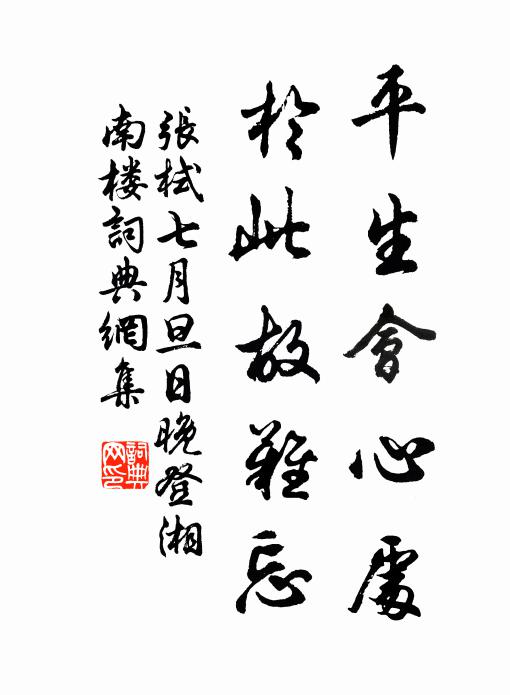 平生會心處
於此故難忘
張栻七月旦日晚登湘
南楼詞典網集
詞典网印